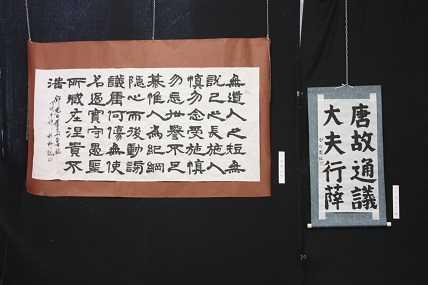 無道人之短無
說己之長施人
慎勿念受施慎
勿忘世譽不足
慕惟仁為紀綱
隱心而後動謗
議庸何傷無使
名過實守愚聖
所臧在涅貴不
淄
唐故通議
大夫行薛